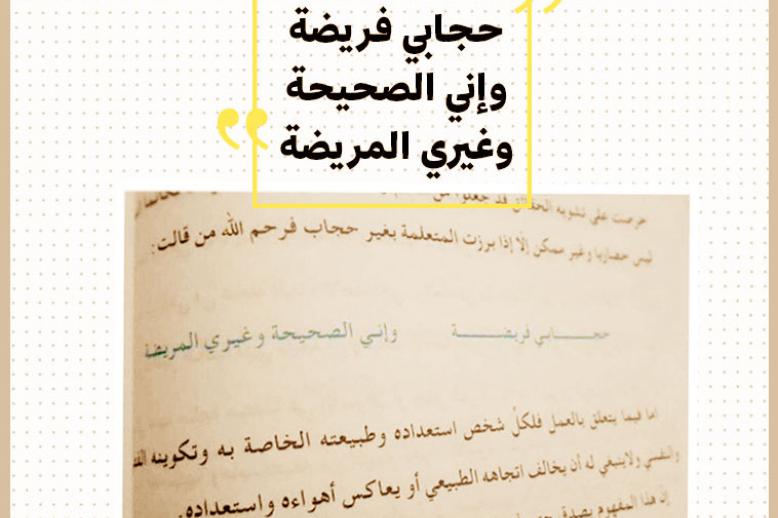 حجابي فريضة
وإني الصحيحة
وغيري المريضة
حرصت على تشويه الحقائق قد جعلوا من
ليس حضاريا وغير ممكن إلا إذا برزت المتعلمة بغير حجاب فرحم الله من قالت:
حجـــابي فريضـــــة وإنـي الصحيحـة وغيـري المريضة
اما فيما يتعلق بالعمل فلكل شخص استعداده وطبيعته الخاصة به وتكوينه
والنفسي ولاينبغي له أن يخالف اتجاهه الطبيعي أو يعاكس أهواءه واستعداده.
إن هذا المفهوم يصدق